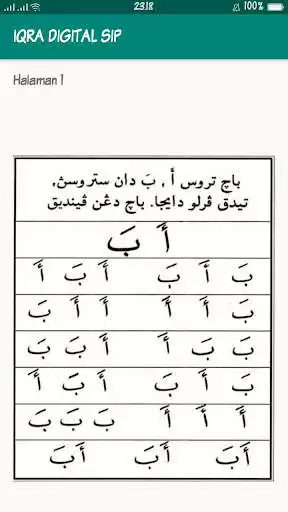 23.18 100%
IQRA DIGITAL SIP
Halaman 1
باچ تروس أ , بَ دان ستروسڽ,
تيدق ڤرلو دايجا. باچ دڠن ڤينديق
أَ بَ
بَ أَ بَ أَ بَ أَ
بَ أَ أَ أَ أَ بَ
بَ بَ أَ أَ بَ بَ
بَ أَ بَ أَ بَ أَ
أَ أَ أَ بَ بَ بَ
أَبَ أَبَ أَبَ